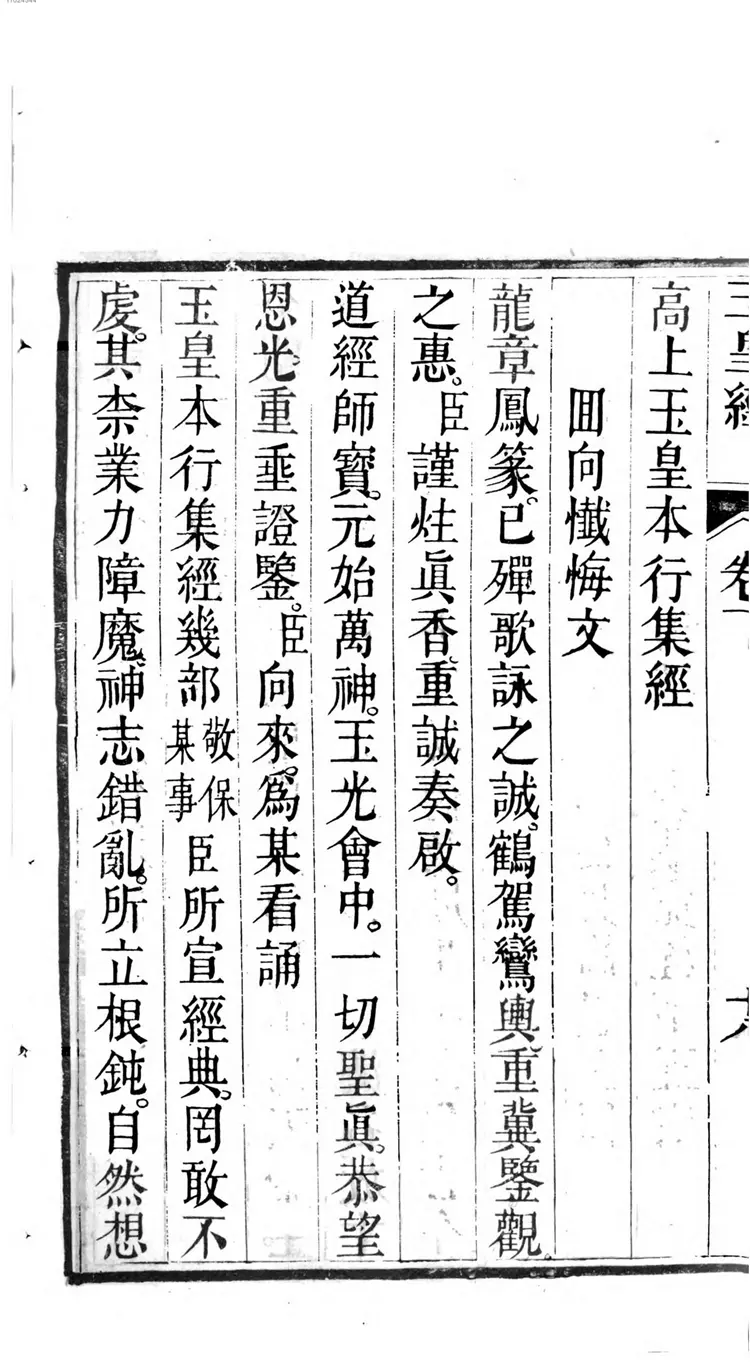 高上玉皇本行集經
囬向懺悔文
龍章鳳篆。已殫歌詠之誠。鶴駕鸞輿。重冀鑒觀。
之惠。臣謹炷眞香。重誠奏啟。
道經師寶。元始萬神。玉光會中。一切聖眞。恭望
恩光。重垂證鑒。臣向來。爲某看誦
玉皇本行集經幾部敬保某事臣所宣經典。罔敢不
虔。其柰業力障魔。神志錯亂。所立根鈍。自然想